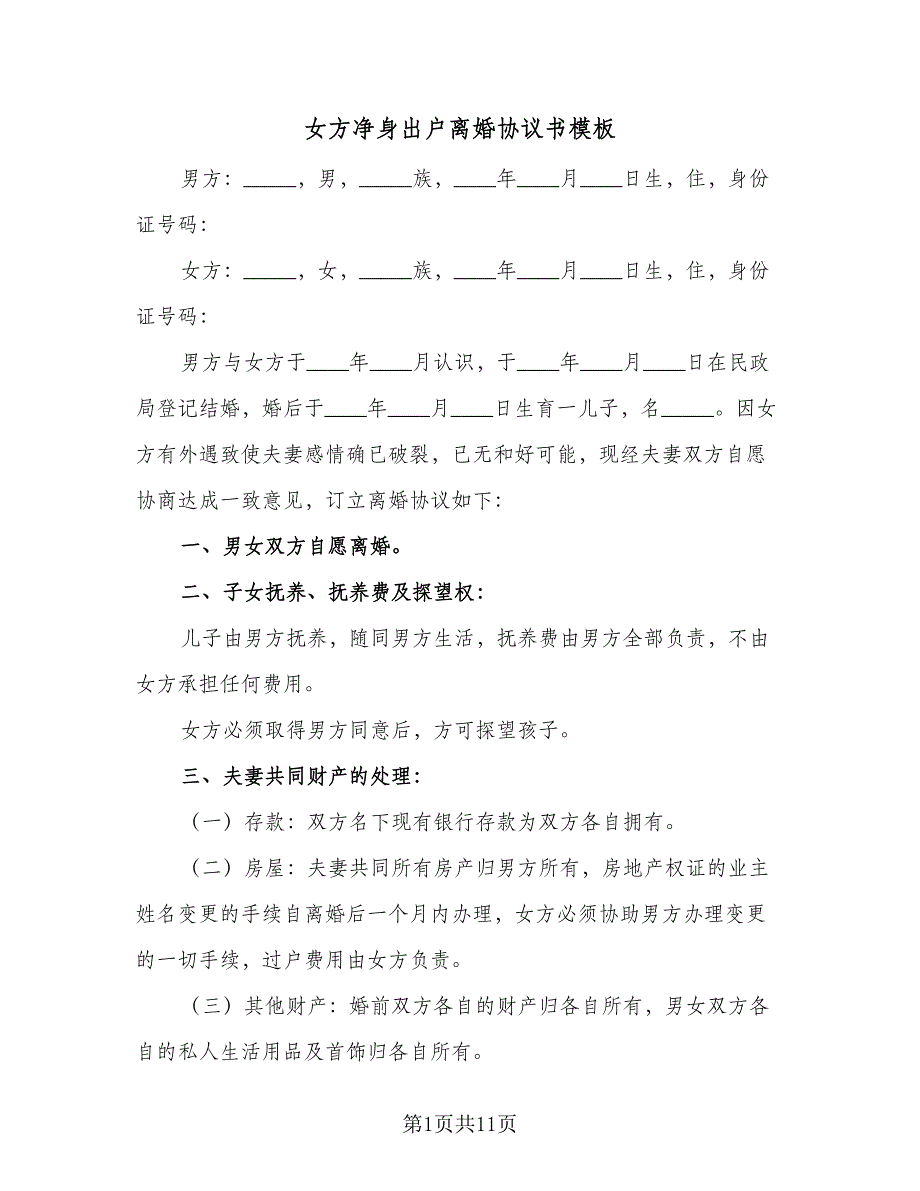 女方净身出户离婚协议书模板
男方：_____，男，_____族，____年____月____日生，住，身份
证号码：
女方：_____，女，_____族，____年____月____日生，住，身份
证号码：
男方与女方于____年____月认识，于____年____月____日在民政
局登记结婚，婚后于____年____月____日生育一儿子，名_____。因女
方有外遇致使夫妻感情确已破裂，已无和好可能，现经夫妻双方自愿
协商达成一致意见，订立离婚协议如下：
一、男女双方自愿离婚。
二、子女抚养、抚养费及探望权：
儿子由男方抚养，随同男方生活，抚养费由男方全部负责，不由
女方承担任何费用。
女方必须取得男方同意后，方可探望孩子。
三、夫妻共同财产的处理：
（一）存款：双方名下现有银行存款为双方各自拥有。
（二）房屋：夫妻共同所有房产归男方所有，房地产权证的业主
姓名变更的手续自离婚后一个月内办理，女方必须协助男方办理变更
的一切手续，过户费用由女方负责。
（三）其他财产：婚前双方各自的财产归各自所有，男女双方各
自的私人生活用品及首饰归各自所有。
第1页共11页